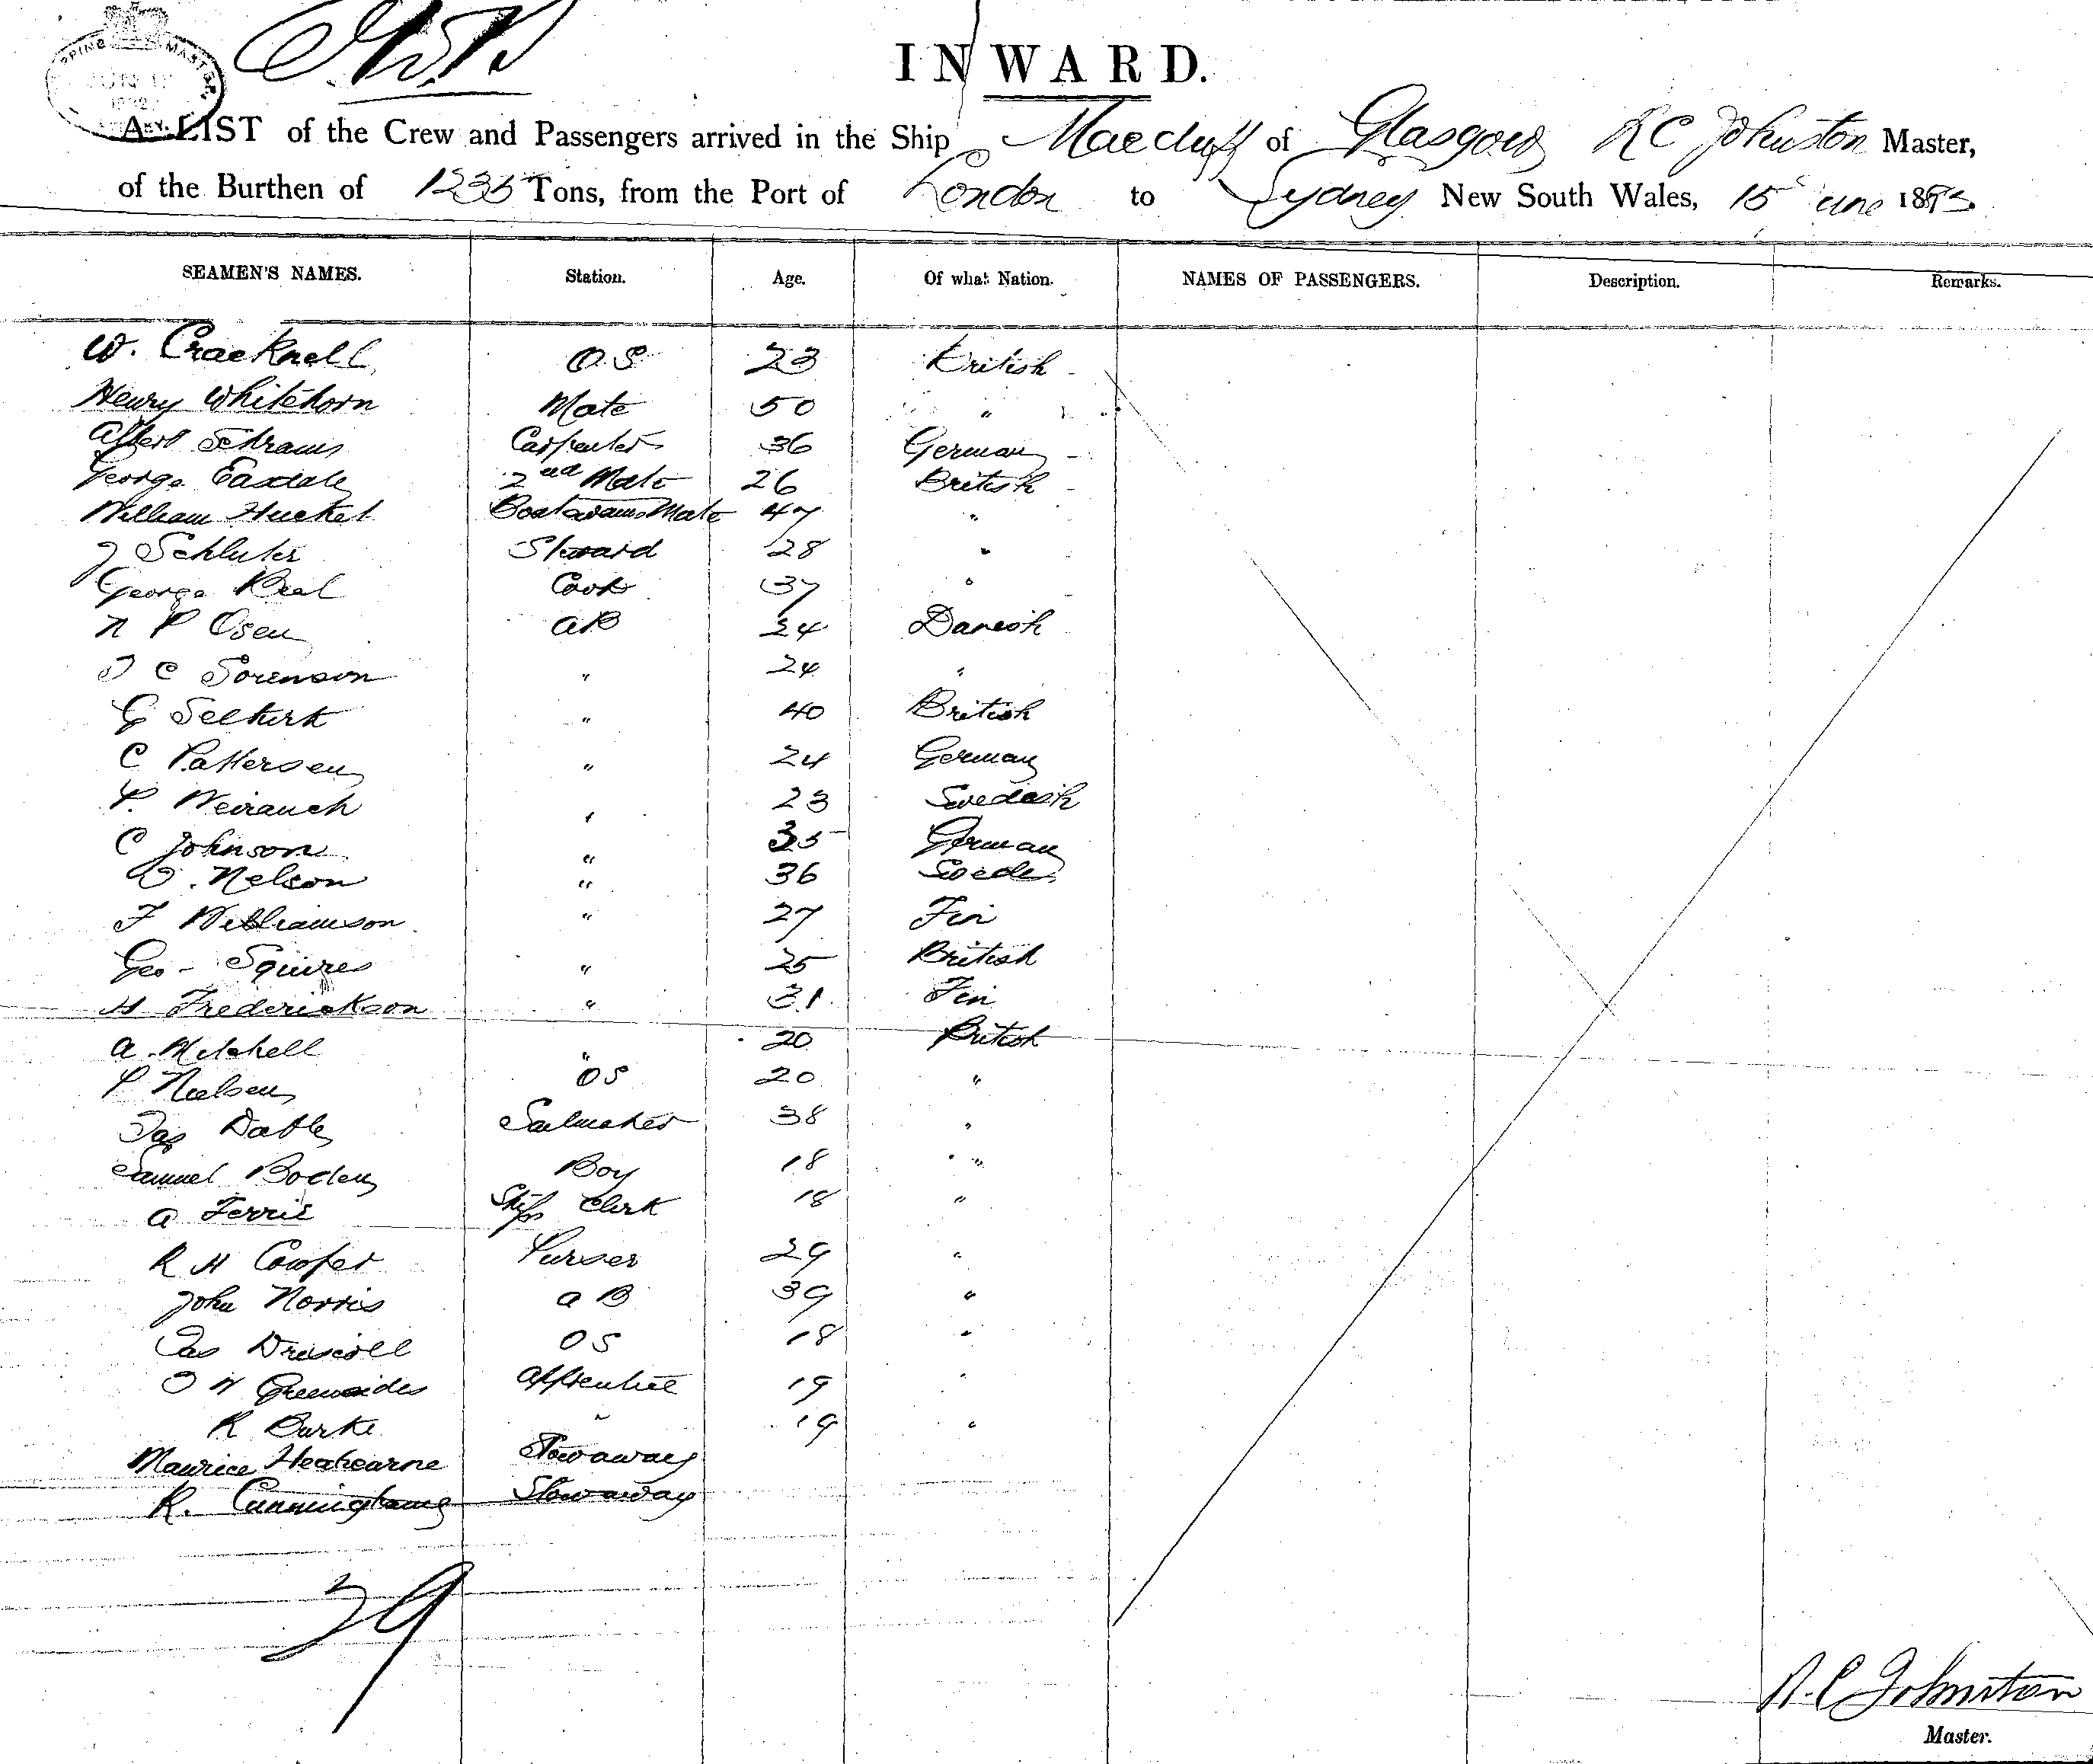 INWARD.
A LIST of the Crew and Passengers arrived in the Ship Macduff of Glasgow R C Johnston Master,
of the Burthen of 1235 Tons, from the Port of London to Sydney New South Wales, 15 June 1893
SEAMEN'S NAMES. Station. Age. Of what Nation. NAMES OF PASSENGERS. Description. Remarks.
W. Cracknell O.S 23 British
Henry Whitehorn Mate 50 "
Albert Schrams Carpenter 36 German
George Easdale 2nd Mate 26 British
William Hucket Boatswains Mate 47 "
J Schluter Steward 28 "
George Beal Cook 37 "
N P Osen AB 24 Danish
J C Sorenson " 24 "
G Selkirk " 40 British
C Pattersen " 24 German
P. Weirauch " 23 Swedish
C Johnson " 35 German
W. Nelson " 36 Swede
F Williamson " 27 Fin
Geo - Squires " 25 British
H Frederickson " 31 Fin
A. Mitchell " 20 British
P Nielsen OS 20 "
Jas Sailmaker 38 "
Samuel Boden Boy 18 "
A Ferrie Ships Clerk 18 "
R H Cowper Purser 29 "
John Norris A B 39 "
Jas Driscoll OS 18 "
Greensides Apprentice 19 "
R Burke " 19 "
Maurice Heahearne Stowaway
R. Cunningham Stowaway
29
R. C Johnston
Master.